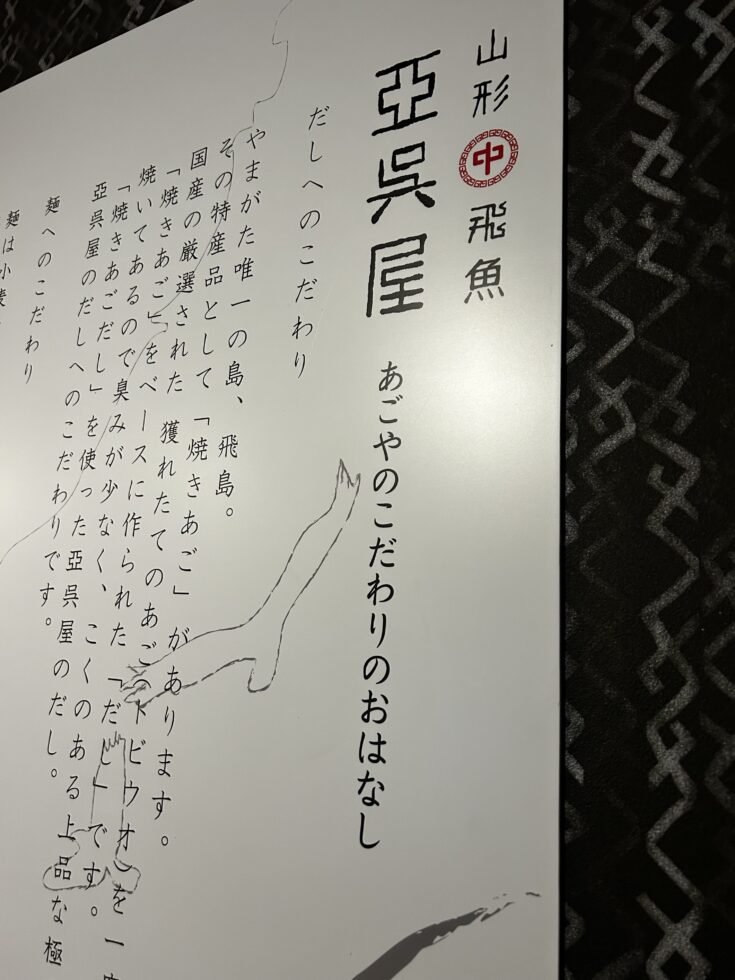 山形 中 飛魚
亞呉屋 あごやのこだわりのおはなし
だしへのこだわり
やまがた唯一の島、飛島。
その特産品として「焼きあご」があります。
国産の厳選された 獲れたてのあご(トビウオ)を一
「焼きあご」をベースに作られた「だし」です。
焼いてあるので臭みが少なく、こくのある上品な極
「焼きあごだし」を使った亞呉屋のだし。
亞呉屋のだしへのこだわりです。
麺へのこだわり
麺は小